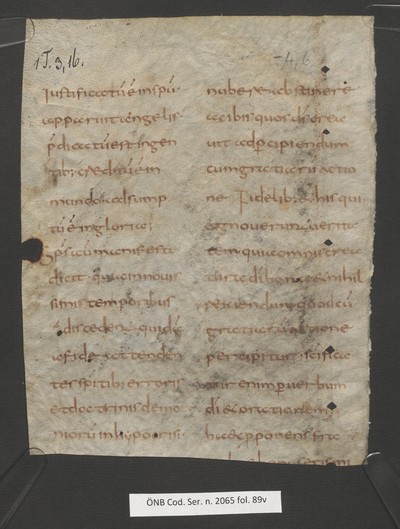 1T. 3,16.
-4,6
iustificatū ē inspū
apparuit angelis
p̄dicatū est in gen
tib; creditū ē in
mundo adsump
tū ē in gloria;
sp̄s autem manifeste
dicit quia in novis
simis temporibus
discedent quidā
a fide attenden
tes spiritib; erroris
et doctrinis demo
niorū in hypocrisi
nubere abstinere
a cibis quos d̄s crea
vit ad p̄cipiendum
cum gratiarū actio
ne fidelib; & his qui
cognoverunt verita
tem quia omnis crea
tura d̄i bona ē & nihil
reiciendum quod cū
gratiarū actione
percipitur scīfica
tur enim p̄ verbum
d̄i & orationem
haec proponens fra
ÖNB Cod. Ser. n. 2065 fol. 89v